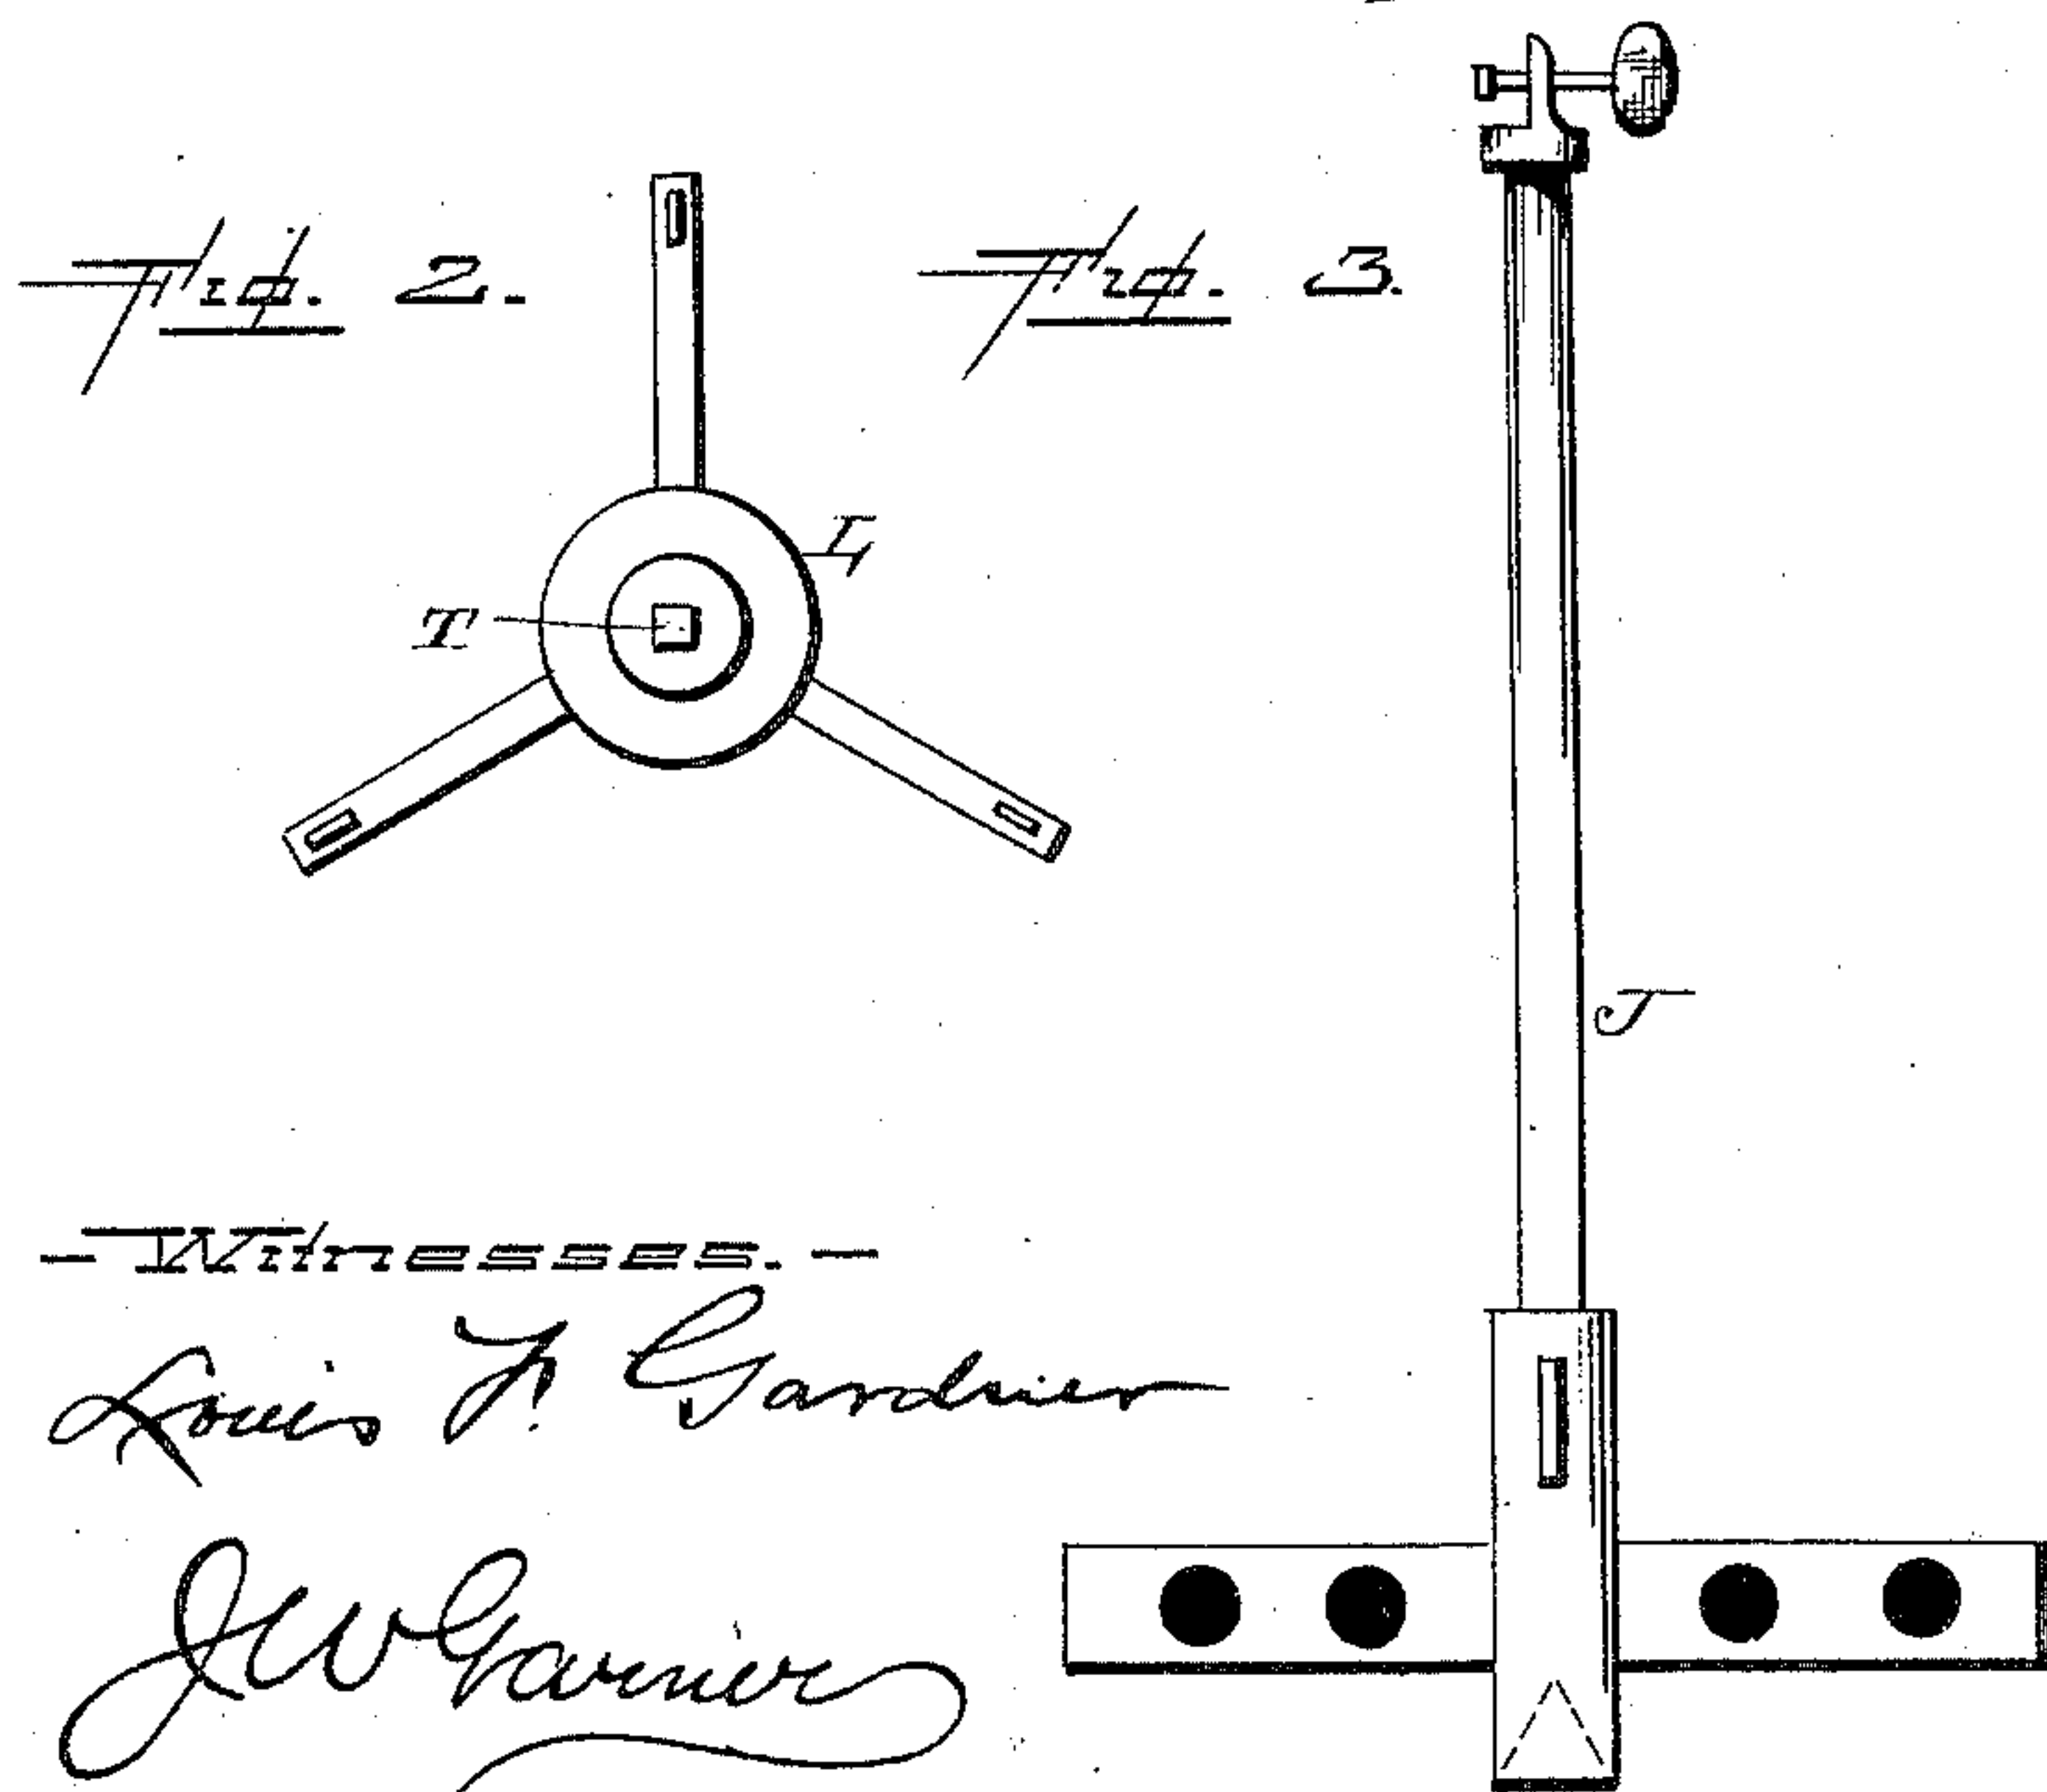 Fig. 2.
Fig. 3.
L
T
J
- Witnesses. -
Louis F. Gardner
J W Garner